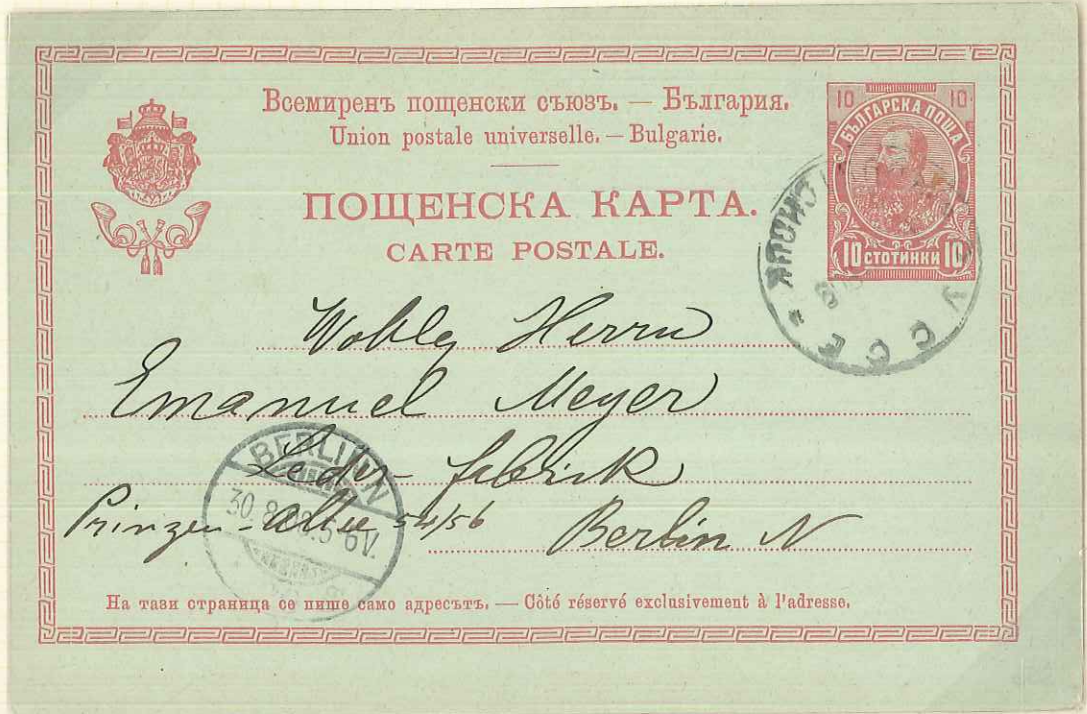 Всемиренъ пощенски съюзъ. — България.
Union postale universelle. — Bulgarie.
ПОЩЕНСКА КАРТА.
CARTE POSTALE.
10 10
БЪЛГАРСКА ПОША
10 СТОТИНКИ 10
Herrn
Emanuel Meyer
Leder fabrik
Prinzen-Allee 54/56 Berlin N
BERLIN N
30.8.
5-6V.
На тази страница се пише само адресътъ. — Côté réservé exclusivement à l'adresse.